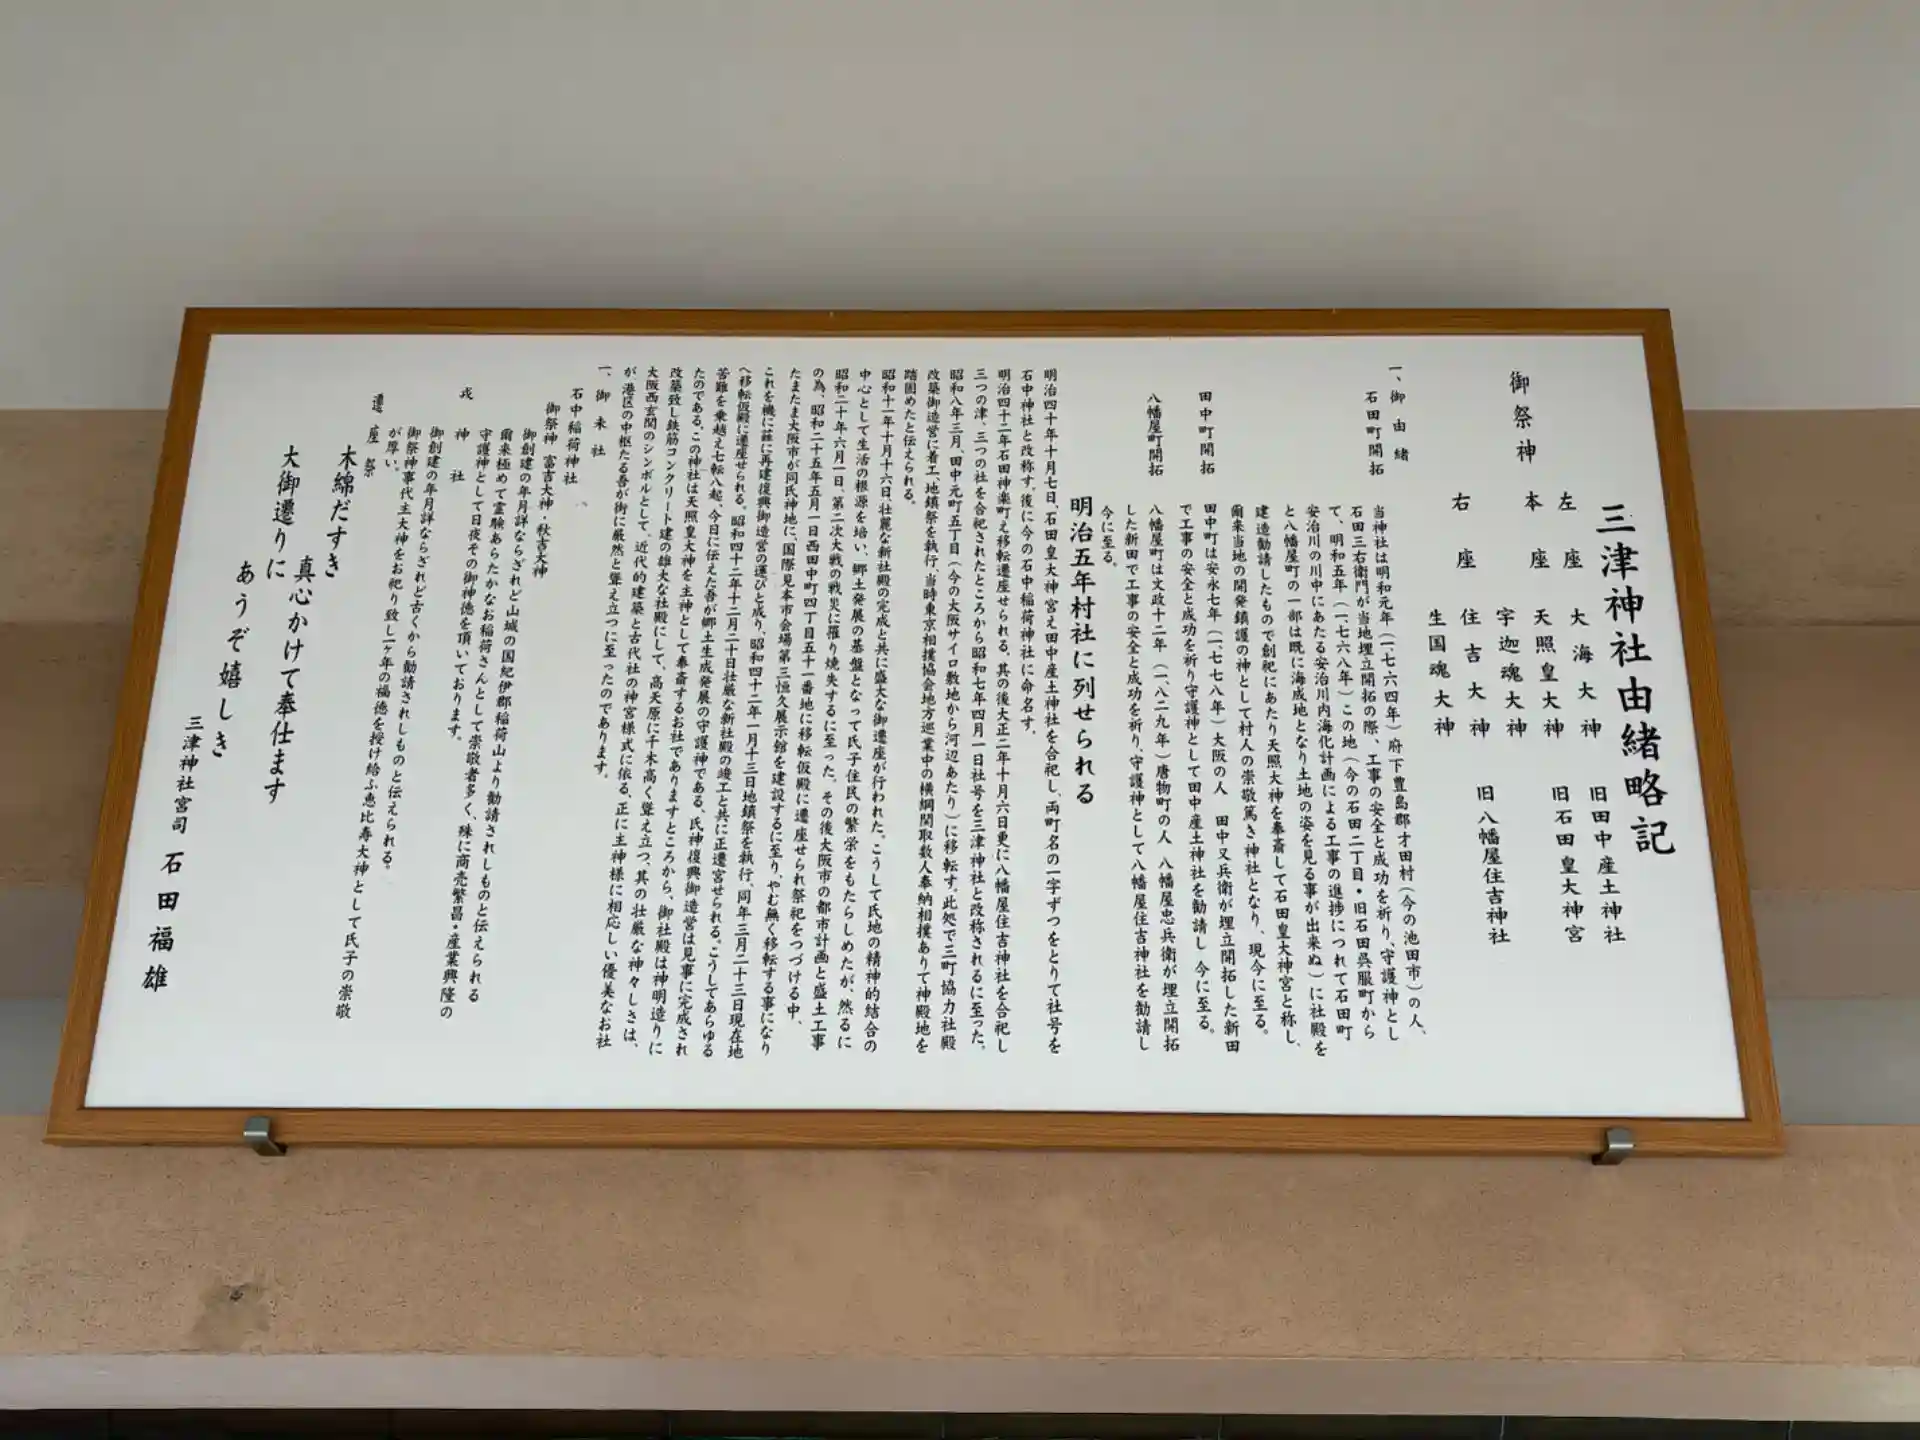 三津神社由緒略記
御祭神
左座 大海大神 旧田中産土神社
本座 天照皇大神 旧石田皇大神宮
宇迦魂大神
右座 住吉大神 旧八幡屋住吉神社
生国魂大神
一、御由緒
石田町開拓
当神社は明和元年（一七六四年）府下豊島郡才田村（今の池田市）の人、
石田三右衛門が当地埋立開拓の際、工事の安全と成功を祈り、守護神とし
て、明和五年（一七六八年）この地（今の石田二丁目・旧石田呉服町から
安治川の川中にあたる安治川内海化計画による工事の進捗につれて石田町
と八幡屋町の一部は既に海成地となり土地の姿を見る事が出来ぬ）に社殿を
建造勧請したもので創祀にあたり天照大神を奉斎して石田皇大神宮と称し、
爾来当地の開発鎮護の神として村人の崇敬篤き神社となり、現今に至る。
田中町開拓
田中町は安永七年（一七七八年）大阪の人 田中又兵衛が埋立開拓した新田
で工事の安全と成功を祈り守護神として田中産土神社を勧請し 今に至る。
八幡屋町開拓
八幡屋町は文政十二年（一八二九年）唐物町の人 八幡屋忠兵衛が埋立開拓
した新田で工事の安全と成功を祈り、守護神として八幡屋住吉神社を勧請し
今に至る。
明治五年村社に列せられる
明治四十年十月七日、石田皇大神宮え田中産土神社を合祀し、両町名の一字ずつをとりて社号を
石中神社と改称す。後に今の石中稲荷神社に命名す。
明治四十二年石田神楽町え移転遷座せられる。其の後大正二年十月六日更に八幡屋住吉神社を合祀し
三つの津、三つの社を合祀されたところから昭和七年四月一日社号を三津神社と改称されるに至った。
昭和八年三月、田中元町五丁目（今の大阪サイロ敷地から河辺あたり）に移転す。此処で三町協力社殿
改築御造営に着工、地鎮祭を執行、当時東京相撲協会地方巡業中の横綱関取数人奉納相撲ありて神殿地を
踏固めたと伝えられる。
昭和十一年十月十六日、壮麗な新社殿の完成と共に盛大な御遷座が行われた。こうして氏地の精神的結合の
中心として生活の根源を培い、郷土発展の基盤となって氏子住民の繁栄をもたらしめたが、然るに
昭和二十年六月一日、第二次大戦の戦災に罹り焼失するに至った。その後大阪市の都市計画と盛土工事
の為、昭和二十五年五月一日西田中町四丁目五十一番地に移転仮殿に遷座せられ祭祀をつづける中、
たまたま大阪市が同氏神地に、国際見本市会場第三恒久展示館を建設するに至り、やむ無く移転する事になり
これを機に茲に再建復興御造営の運びと成り、昭和四十二年一月十三日地鎮祭を執行、同年三月二十三日現在地
へ移転仮殿に遷座せられる。昭和四十二年十二月二十日壮厳な新社殿の竣工と共に正遷宮せられる。こうしてあらゆる
苦難を乗越え七転八起、今日に伝えた吾が郷土生成発展の守護神である、氏神復興御造営は見事に完成され
たのである。この神社は天照皇大神を主神として奉斎するお社でありますところから、御社殿は神明造りに
改築致し鉄筋コンクリート建の雄大な社殿にして、高天原に千木高く聳え立つ、其の壮厳な神々しさは、
大阪西玄関のシンボルとして、近代的建築と古代社の神宮様式に依る、正に主神様に相応しい優美なお社
が、港区の中枢たる吾が街に厳然と聳え立つに至ったのであります。
一、御末社
石中稲荷神社
御祭神 富吉大神・秋吉大神
御創建の年月詳ならざれど山城の国紀伊郡稲荷山より勧請されしものと伝えられる
爾来極めて霊験あらたかなお稲荷さんとして崇敬者多く、殊に商売繁昌・産業興隆の
守護神として日夜その御神徳を頂いております。
戎神社
御創建の年月詳ならざれど古くから勧請されしものと伝えられる。
御祭神事代主大神をお祀り致し一ヶ年の福徳を授け給ふ恵比寿大神として氏子の崇敬
が厚い。
遷座祭
木綿だすき
真心かけて奉仕ます
大御遷りに
あうぞ嬉しき
三津神社宮司 石田福雄